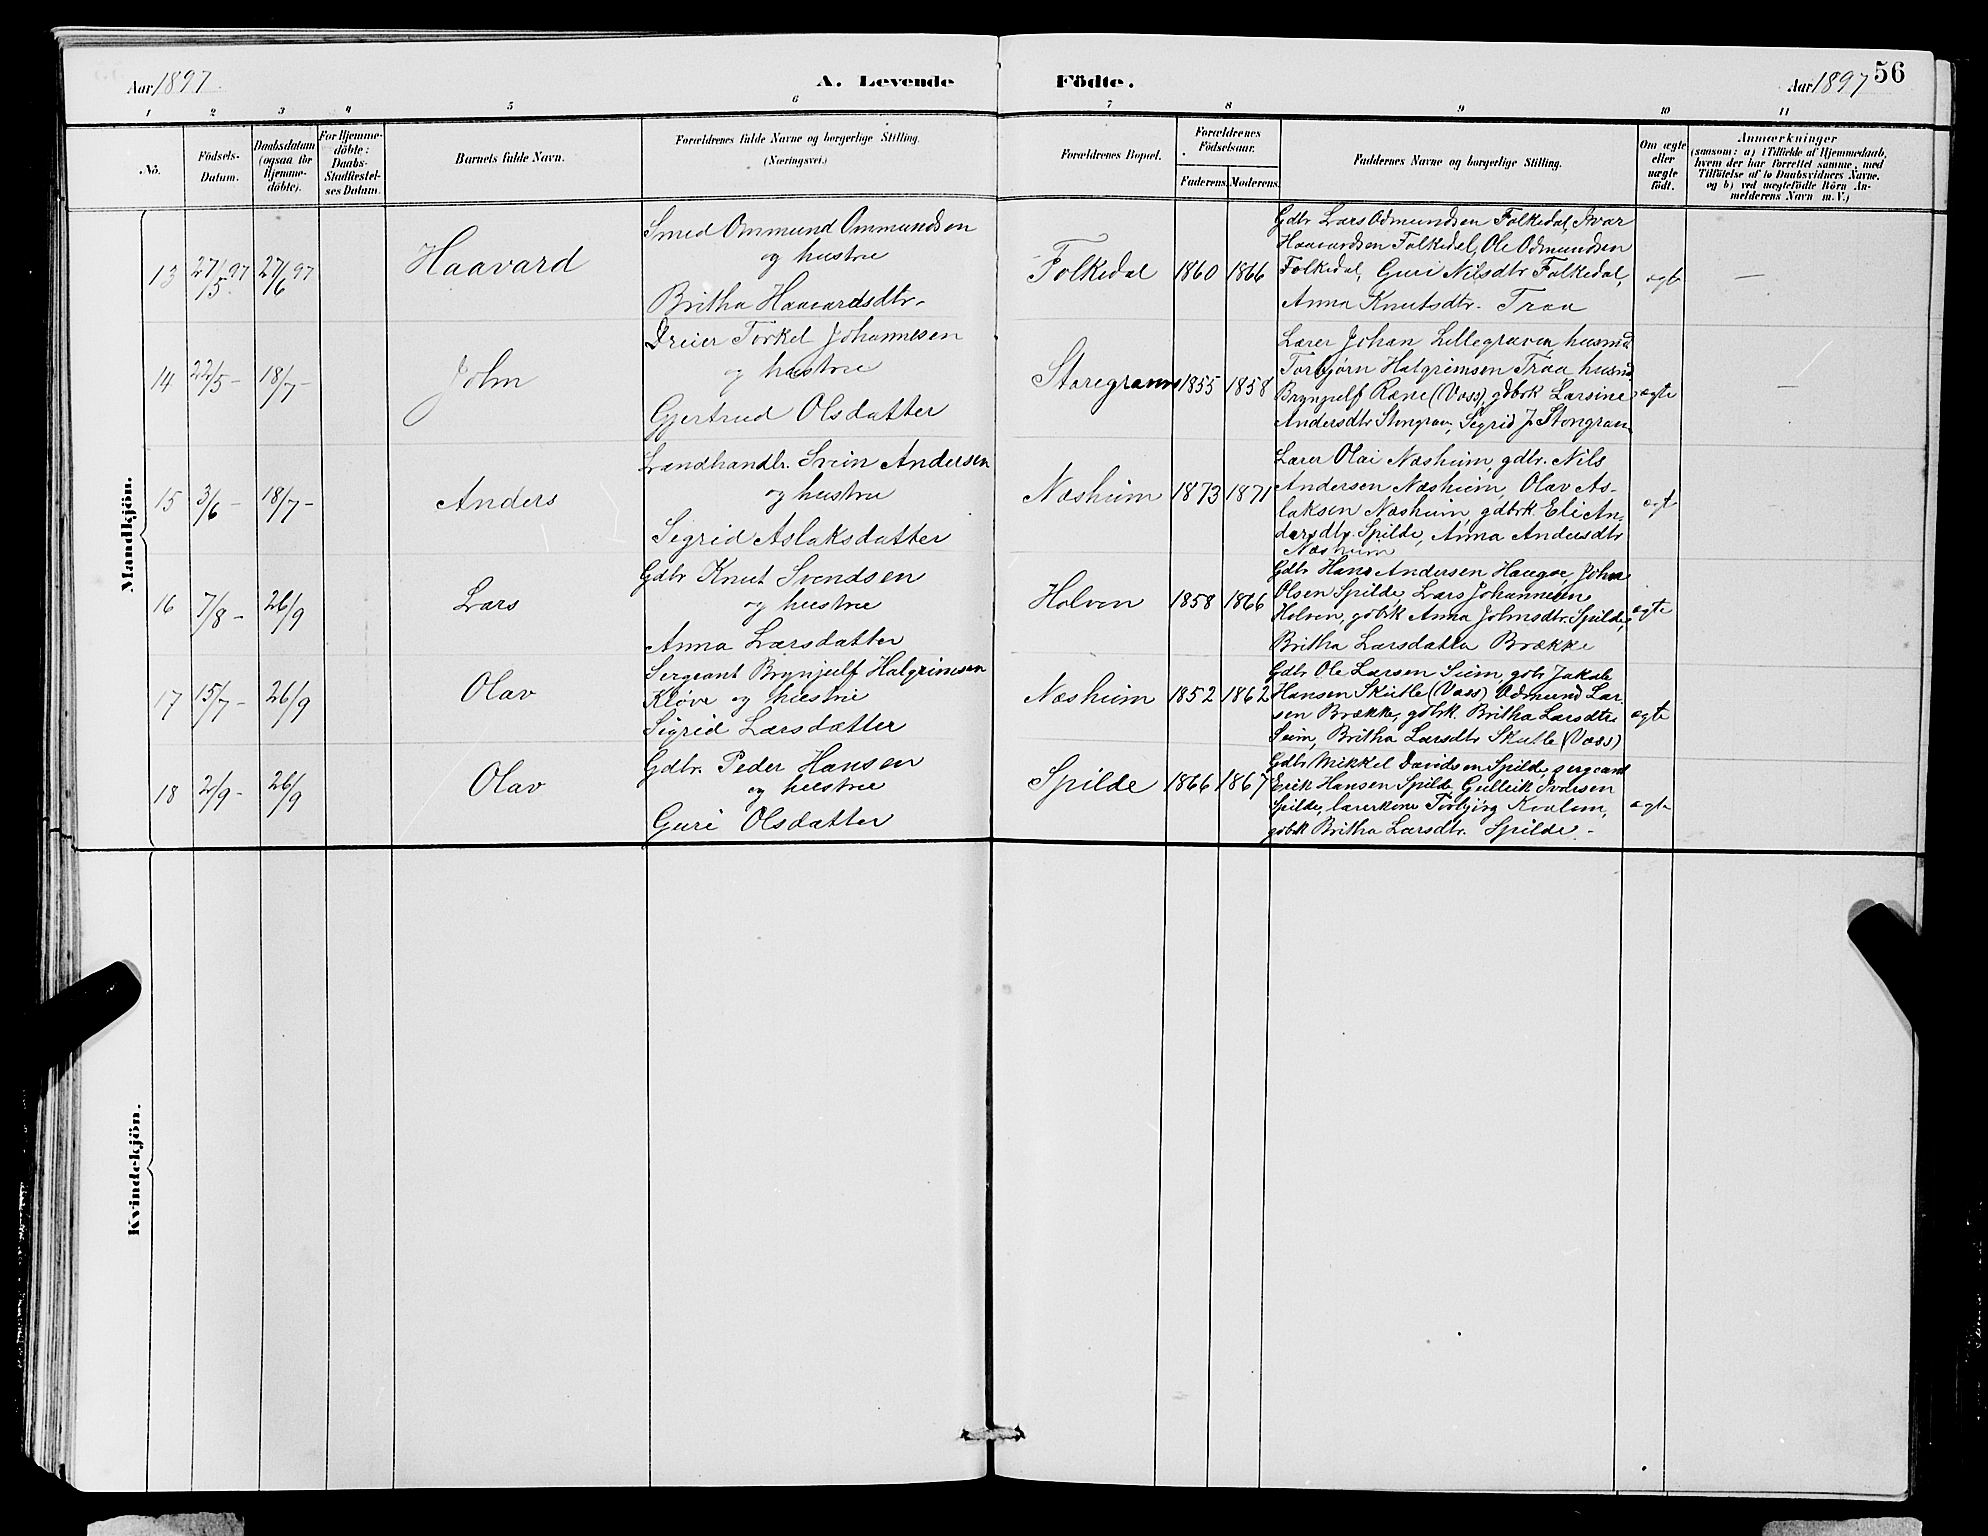 Aar 1897. A. Levende Födte. Aar 1897 56
1 2 3 4 5 6 7 8 9 10 11
No.
Födsels-
Datum.
Daabsdatum
(ogsaa for
Hjemme-
döbte).
For Hjemme-
döbte:
Daabs-
Stadfæstel-
ses Datum.
Barnets fulde Navn.
Forældrenes fulde Navne og borgerlige Stilling.
(Næringsvei.)
Forældrenes Bopæl.
Forældrenes
Födselsaar.
Faderens. Moderens.
Faddernes Navne og borgerlige Stilling.
Om ægte
eller
uægte
födt.
Anmærkninger
(saasom: a) i Tilfælde af Hjemmedaab,
hvem der har forrettet samme, med
Tilföielse af to Daabsvidners Navne,
og b) ved uægtefödte Börn An-
melderens Navn m.V.)
Mandkjön.
13 27/5 97 27/6 97 Haavard
Smed Ommund Ommundsen
og hustru
Britha Haavardsdtr.
Folkedal 1860 1866
Gdbr Lars Odmundsen Folkedal, Ivar
Haavardsen Folkedal, Ole Odmundsen
Folkedal, Guri Nilsdtr Folkedal,
Anna Knutsdtr. Traa
ægte —
14 22/5 - 18/7 - John
Dreier Torkel Johannesen
og hustru
Gjertrud Olsdatter
Storegraven 1855 1858
Lærer Johan Lillegraven husmd
Torbjørn Halgrimsen Traa husmd
Brynjulf Ræne (Voss), gdbrk Larsine
Andersdtr Storgrav, Sigrid J. Storgrav
ægte —
15 3/6 - 18/7 - Anders
Landhandlr. Svein Andersen
og hustru
Sigrid Aslaksdatter
Næsheim 1873 1871
Lærer Olai Næsheim, gdbr. Nils
Andersen Næsheim, Olav As-
laksen Næsheim, gdbrk. Eli An-
dersdtr. Spilde, Anna Andersdtr
Næsheim
ægte
16 7/8 - 26/9 Lars
Gdbr Knut Svendsen
og hustru
Anna Larsdatter
Holven 1858 1866
Gdbr Hans Andersen Haugse, John
Olsen Spilde, Lars Johannesen
Holven, gdbrk Anna Johnsdtr. Spilde,
Britha Larsdatter Brække
ægte
17 15/7 - 26/9 Olav
Sergeant Brynjulf Halgrimsen
Kløve og hustru
Sigrid Larsdatter
Næsheim 1852 1862
Gdbr Ole Larsen Seim, gdbr Jakob
Hansen Skutle (Voss) Odmund Lar-
sen Brække, gdbrk. Britha Larsdtr
Seim, Britha Larsdtr Skutle (Voss)
ægte
18 2/9 - 26/9 Olav
Gdbr. Peder Hansen
og hustru
Guri Olsdatter
Spilde 1866 1867
Gdbr Mikkel Davidsen Spilde, sergeant
Erik Hansen Spilde, Gulleik Ivarsen
Spilde, lærerkone Torbjørg Kvalem,
gdbk Britha Larsdtr. Spilde. -
ægte
Kvindekjön.